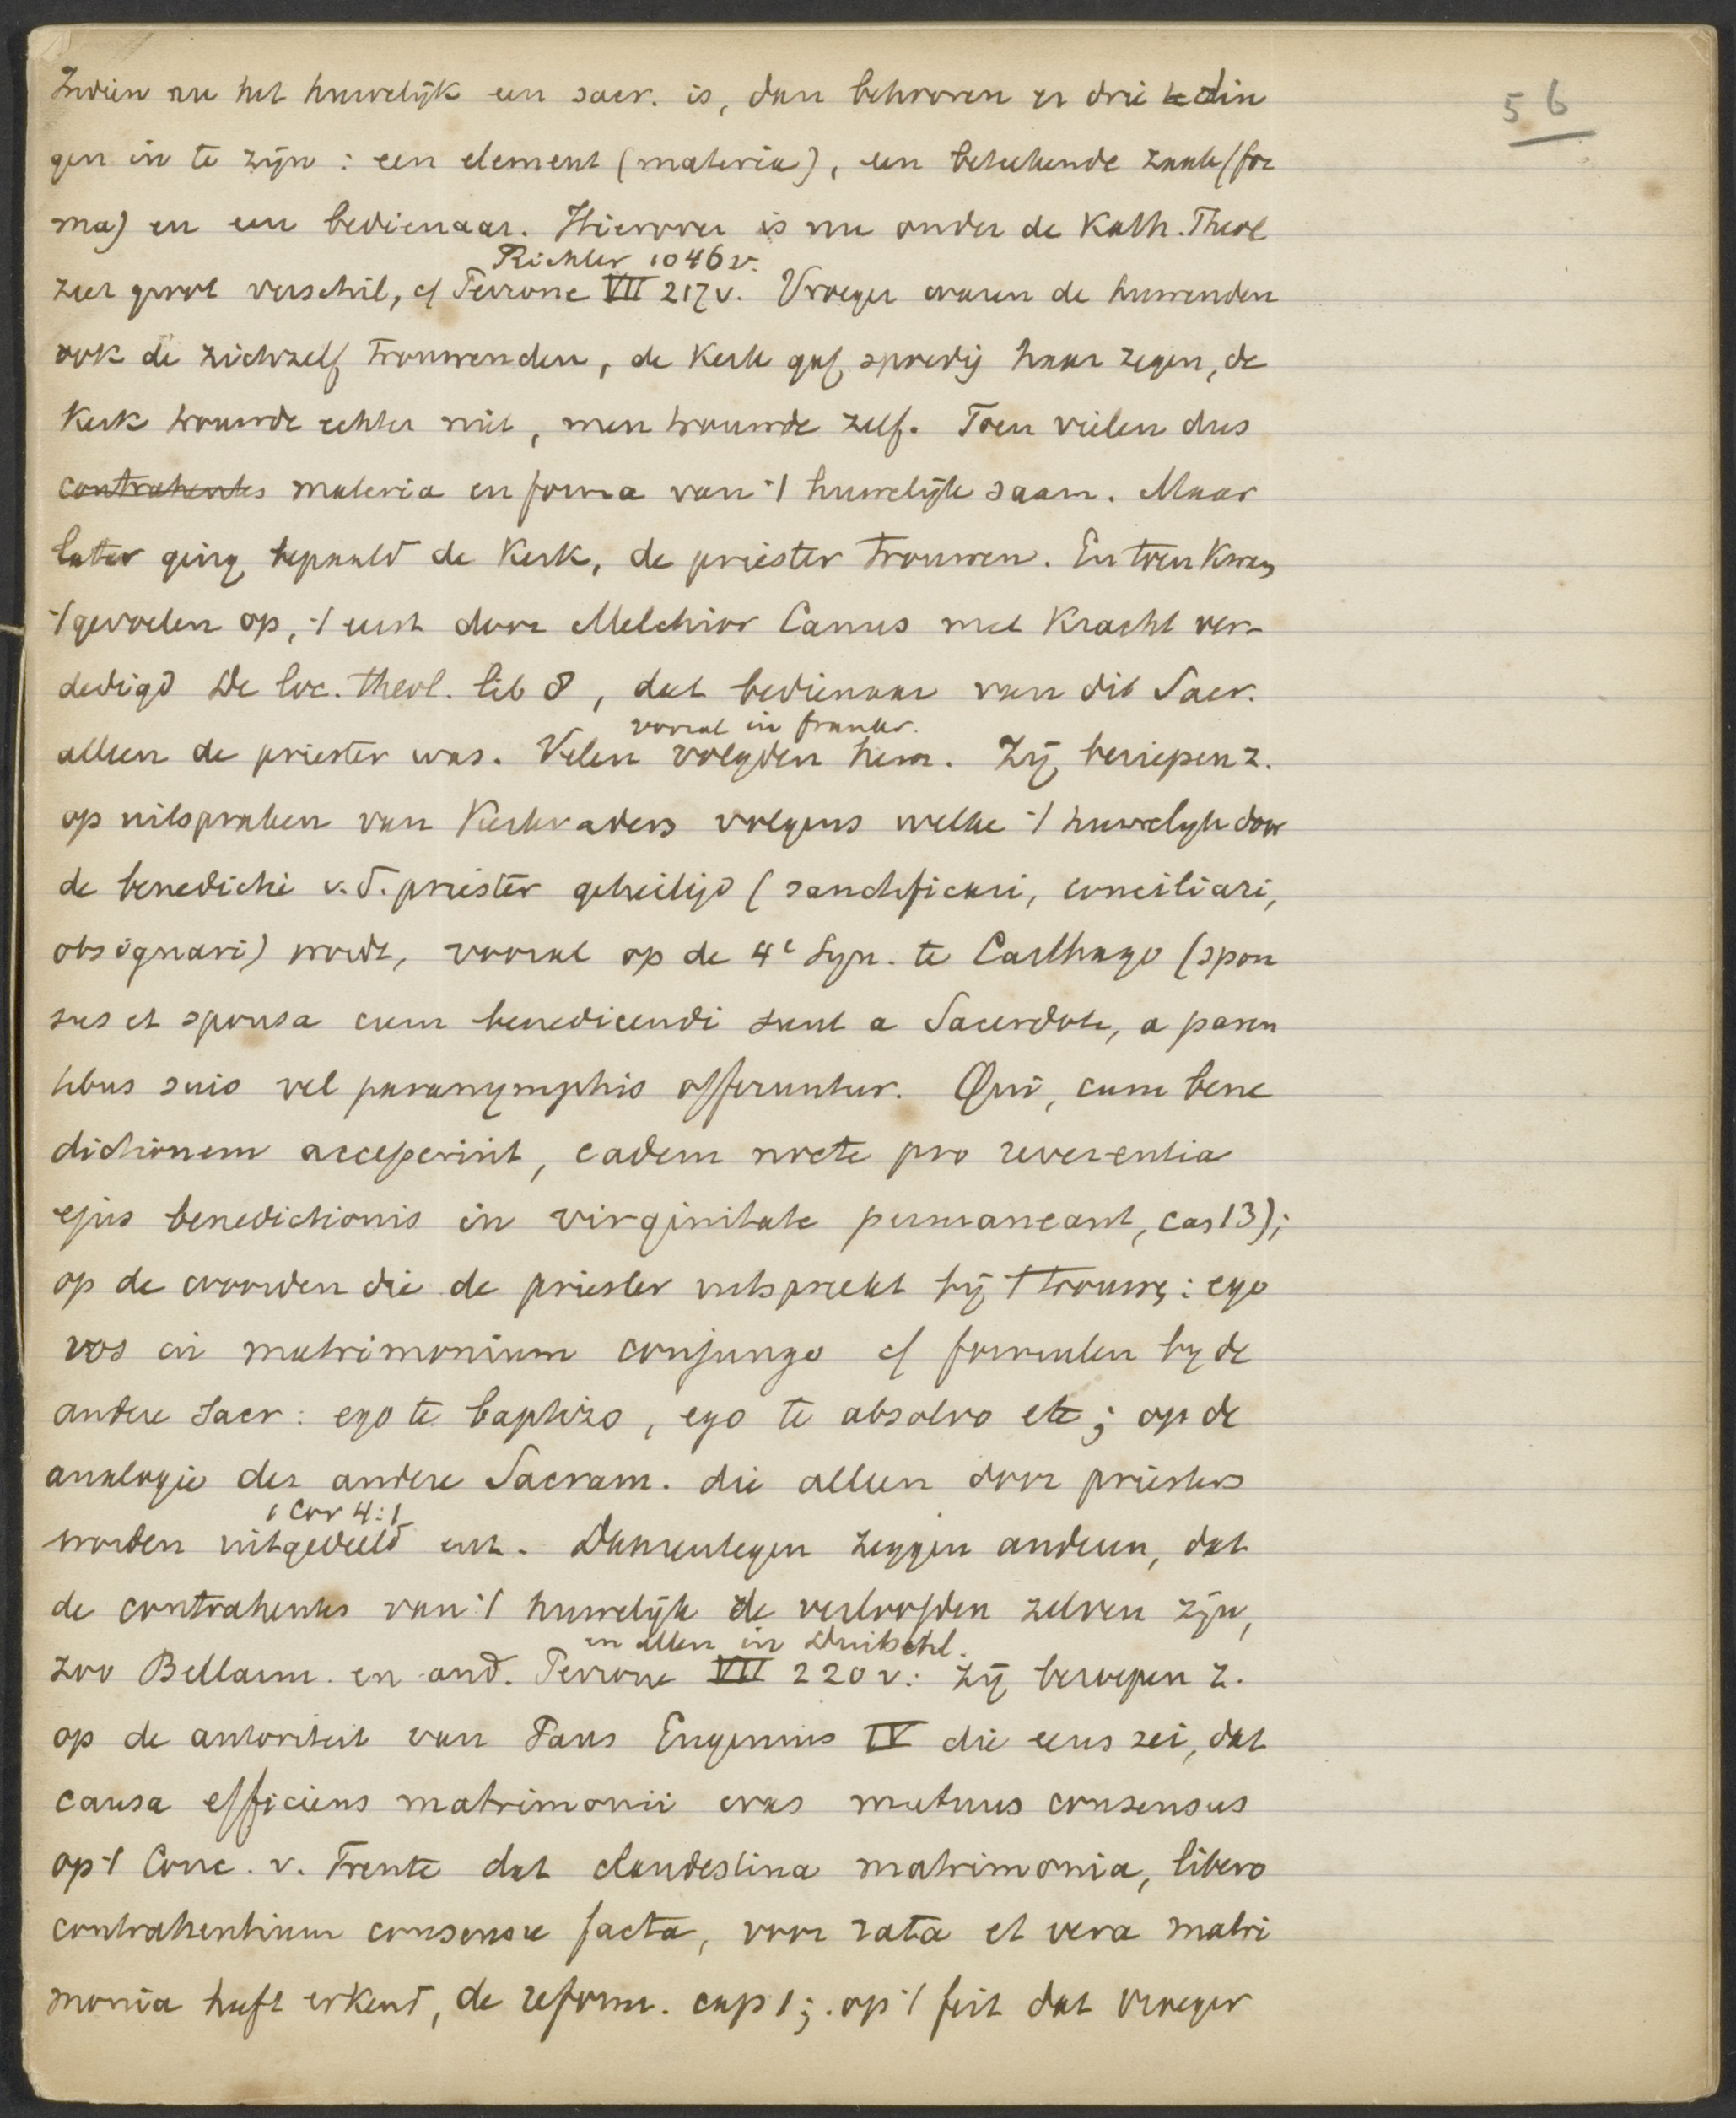 56
Indien nu het huwelijk een sacr. is, dan behooren er drie din
gen in te zijn: een element (materia), een beteekende zaak (for
ma) en een bedienaar. Hierover is nu onder de Kath. Theol
Richter 1046 v.
zeer groot verschil, cf Perrone VII 217 v. Vroeger waren de huwenden
ook de zichzelf trouwenden, de Kerk gaf spoedig haar zegen, de
Kerk trouwde echter niet, men trouwde zelf. Toen vielen dus
contrahentes materia en forma van 't huwelijk saam. Maar
later ging bepaald de Kerk, de priester trouwen. En toen kwam
't gevoelen op, 't eerst door Melchior Canus met kracht ver-
dedigd De loc. theol. lib 8, dat bedienaar van dit Sacr.
vooral in Frankr.
alleen de priester was. Velen volgden hem. Zij beriepen z.
op uitspraken van Kerkvaders volgens welke 't huwelijk door
de benedictie v.d. priester geheiligd (sanctificari, conciliari,
obsignari) wordt, vooral op de 4e Syn. te Carthago (spon
sus et sponsa cum benedicendi sunt a Sacerdote, a paren
tibus suis vel paranymphis offeruntur. Qui, cum bene
dictionem acceperint, eadem nocte pro reverentia
ejus benedictionis in virginitate permaneant, can 13);
op de woorden die de priester uitspreekt bij 't trouwen: ego
vos in matrimonium conjungo cf formulen by de
andere Sacr: ego te baptizo, ego te absolvo etc; op de
analogie der andere Sacram. die alleen door priesters
1 Cor 4:1
worden uitgedeeld enz. Daarentegen zeggen anderen, dat
de contrahentes van 't huwelijk de verloofden zelven zijn,
en allen in Duitschl.
zoo Bellarm. en and. Perrone VII 220 v: Zij beroepen z.
op de autoriteit van Paus Eugenius IV die eens zei, dat
causa efficiens matrimonii was mutuus consensus
op 't Conc. v. Trente dat clandestina matrimonia, libero
contrahentium consensu facta, voor rata et vera matri
monia heeft erkend, de reform. cap 1; op 't feit dat vroeger